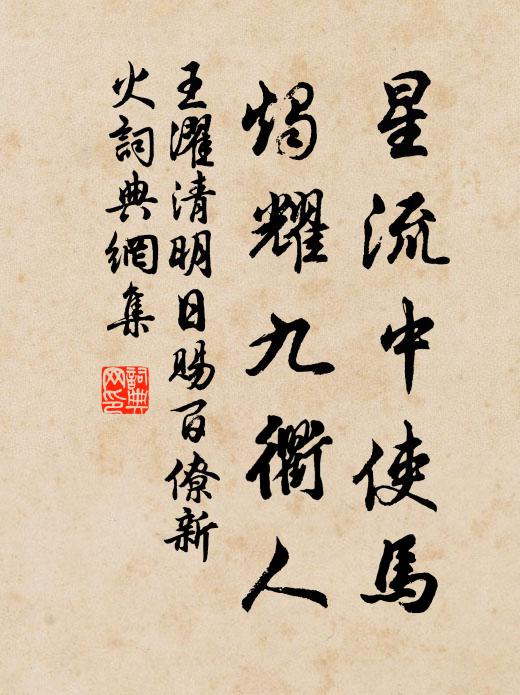 星流中使馬
燭耀九衢人
王濯清明日賜百僚新
火詞典網集
詞典
网印